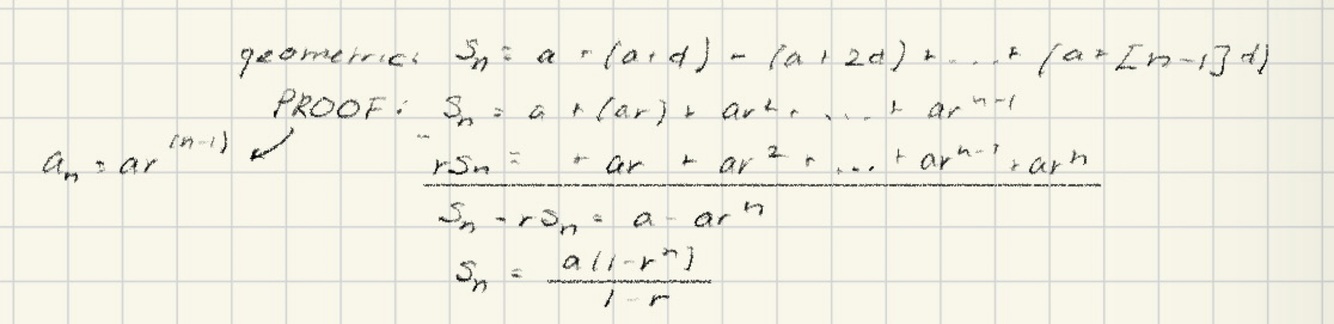 geometric: Sₙ = a + (a+d) + (a+2d) + ... + (a+[n-1]d)
PROOF: Sₙ = a + (ar) + ar² + ... + ar^(n-1)
aₙ = ar^(n-1)
- rSₙ = + ar + ar² + ... + ar^(n-1) + arⁿ
Sₙ - rSₙ = a - arⁿ
Sₙ = a(1-rⁿ) / 1-r